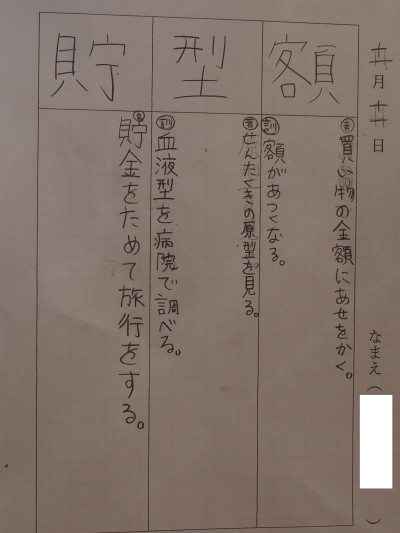 月 日
なまえ（ ）
額
㊥音 買い物の金額にあせをかく。
訓 額があつくなる。
型
音 せんたくきの原型を見る。
訓 血液型を病院で調べる。
貯
音 貯金をためて旅行をする。